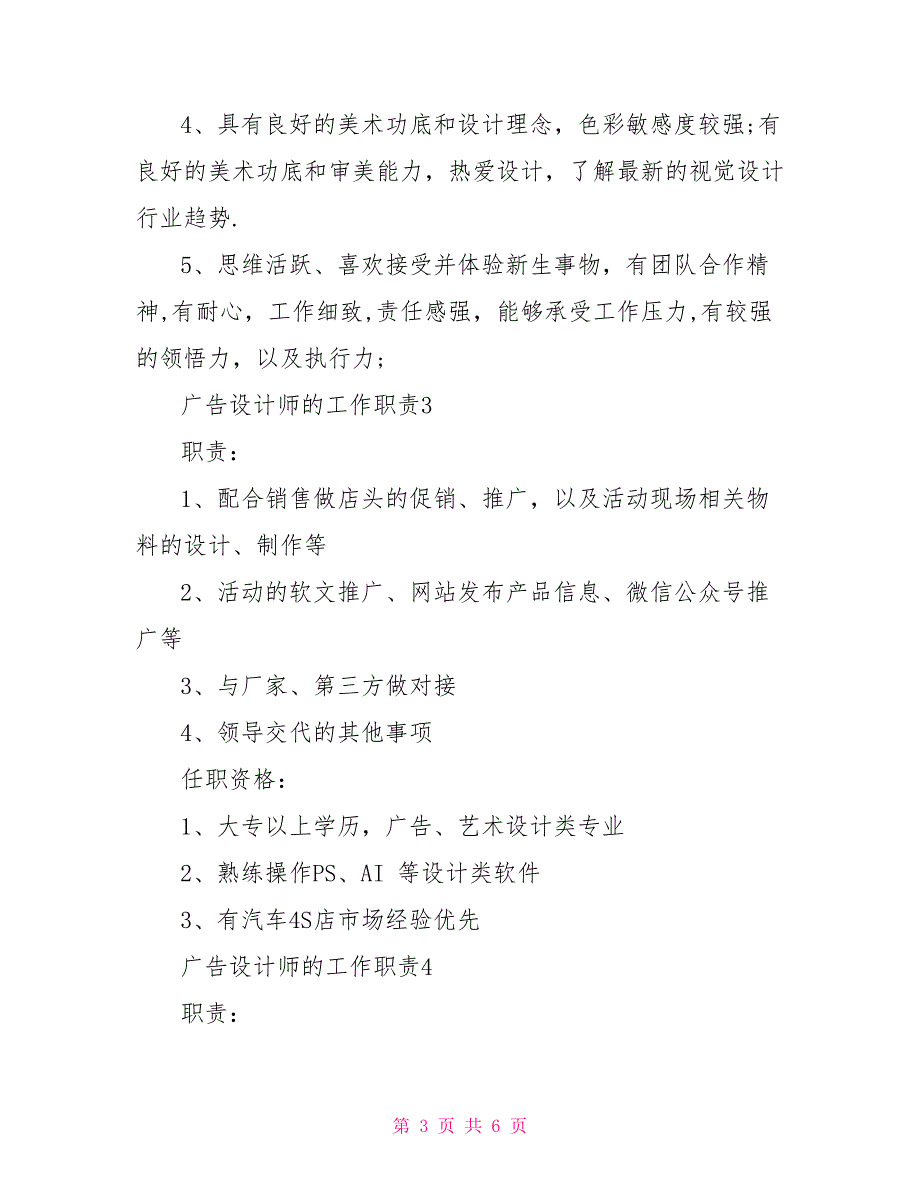 4、具有良好的美术功底和设计理念，色彩敏感度较强;有
良好的美术功底和审美能力，热爱设计，了解最新的视觉设计
行业趋势.
5、思维活跃、喜欢接受并体验新生事物，有团队合作精
神,有耐心，工作细致,责任感强，能够承受工作压力,有较强
的领悟力，以及执行力;
广告设计师的工作职责3
职责：
1、配合销售做店头的促销、推广，以及活动现场相关物
料的设计、制作等
2、活动的软文推广、网站发布产品信息、微信公众号推
广等
3、与厂家、第三方做对接
4、领导交代的其他事项
任职资格：
1、大专以上学历，广告、艺术设计类专业
2、熟练操作PS、AI 等设计类软件
3、有汽车4S店市场经验优先
广告设计师的工作职责4
职责：
第 3 页 共 6 页